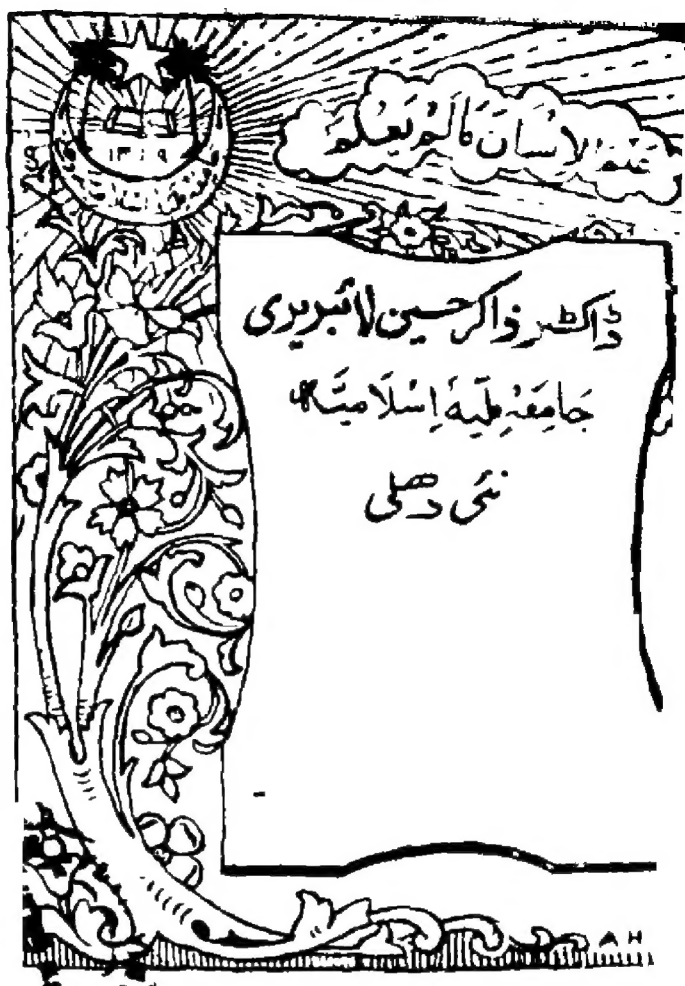 علم الانسان مالم يعلم
۱۳۳۹
ڈاکٹر ذاکر حسین لائبریری
جامعہ ملیہ اسلامیہ
نئی دھلی
A H